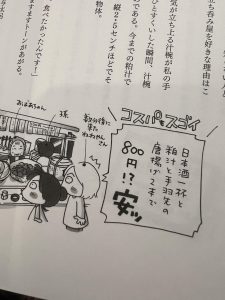 立ち呑み屋を好きな理由はこ
気が立ち上る汁椀が私の手
ひとすくいした瞬間、汁椀
である。今までの粕汁で
縦2.5センチほどでそ
物体。
食べたかったんです！」
ますますトーンがあがる。
コスパもスゴイ
日本酒一杯と
粕汁と手羽先の
唐揚げ2まで
800円!?
安ッ
おばあちゃん
孫